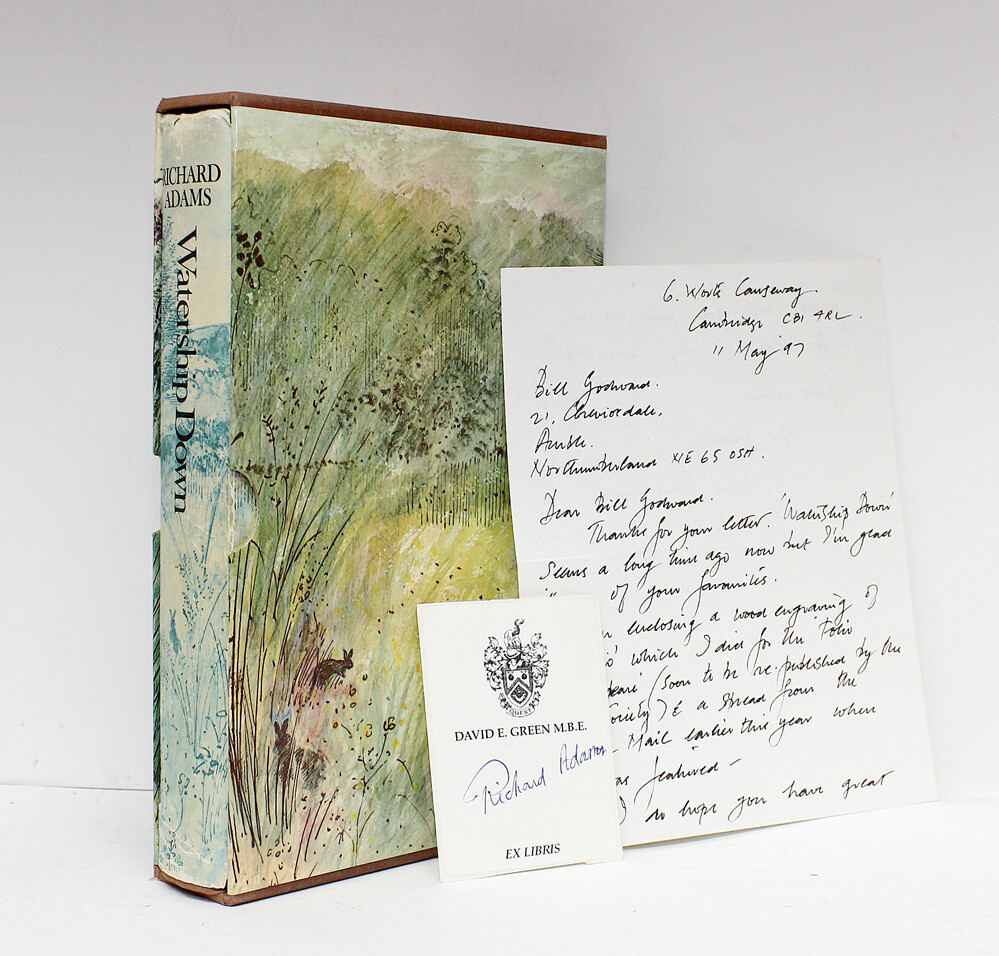 RICHARD
ADAMS
Watership Down
6. Worts Causeway.
Cambridge CB1 4RL.
11 May 97
Bill Godward.
21, Cheviotdale,
Amble.
Northumberland NE 65 0SH.
Dear Bill Godward.
Thanks for your letter. 'Watership Down'
seems a long time ago now but I'm glad
of your favourites.
enclosing a wood engraving of
which I did for the 'Folio
(soon to be re-published by the
& a Spread from the
Mail earlier this year when
as featured –
do hope you have great
QUEST
DAVID E. GREEN M.B.E.
Richard Adams
EX LIBRIS